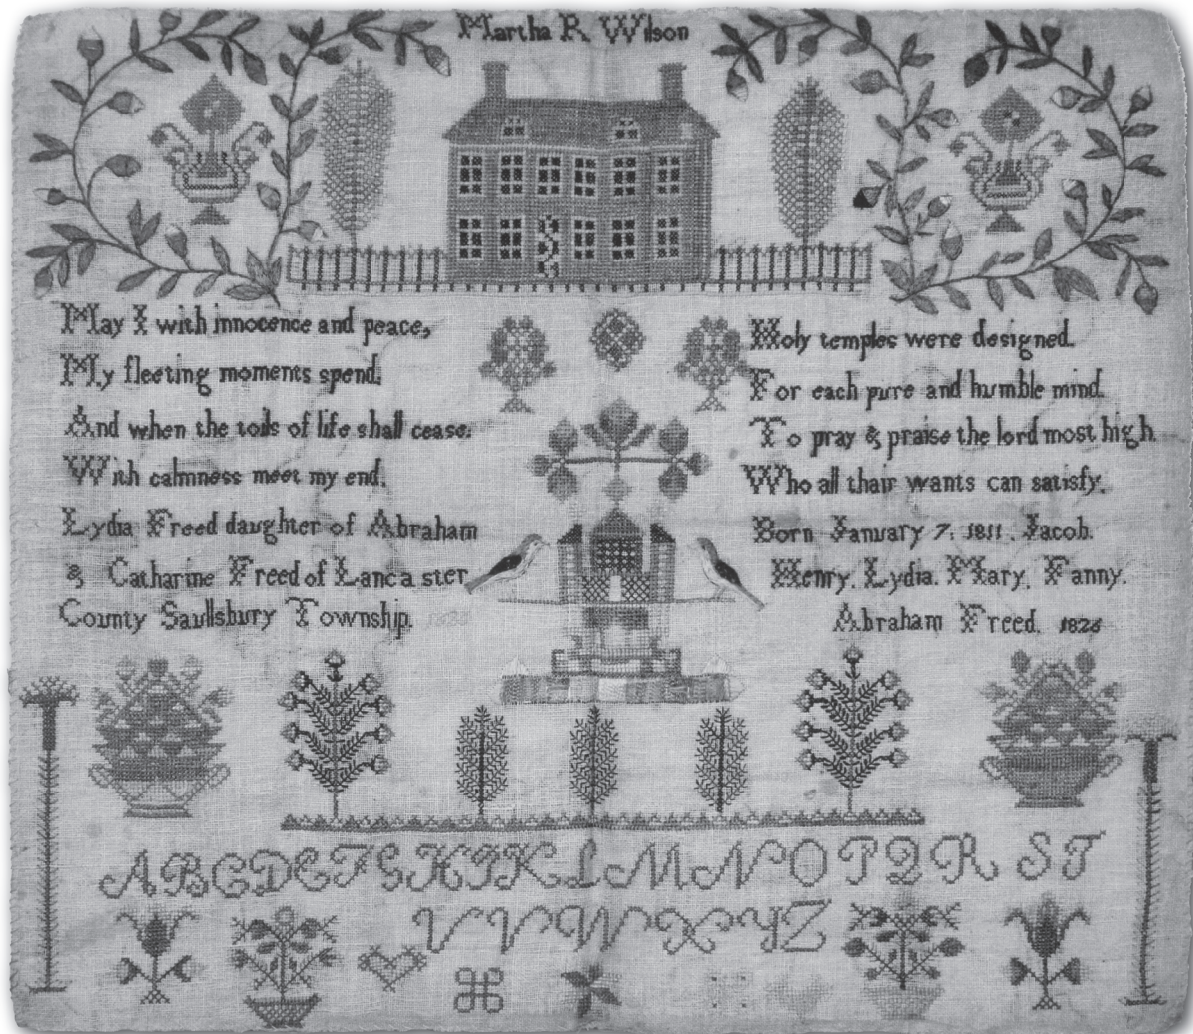 Martha R Wilson
May I with innocence and peace,
My fleeting moments spend.
And when the toils of life shall cease.
With calmness meet my end.
Lydia Freed daughter of Abraham
& Catharine Freed of Lancaster
County Saullsbury Township.
Holy temples were designed.
For each pure and humble mind.
To pray & praise the lord most high
Who all thair wants can satisfy.
Born January 7. 1811. Jacob.
Henry. Lydia. Mary. Fanny.
Abraham Freed. 1826
A B C D E F G H I K L M N O P Q R S T
U V W X Y Z